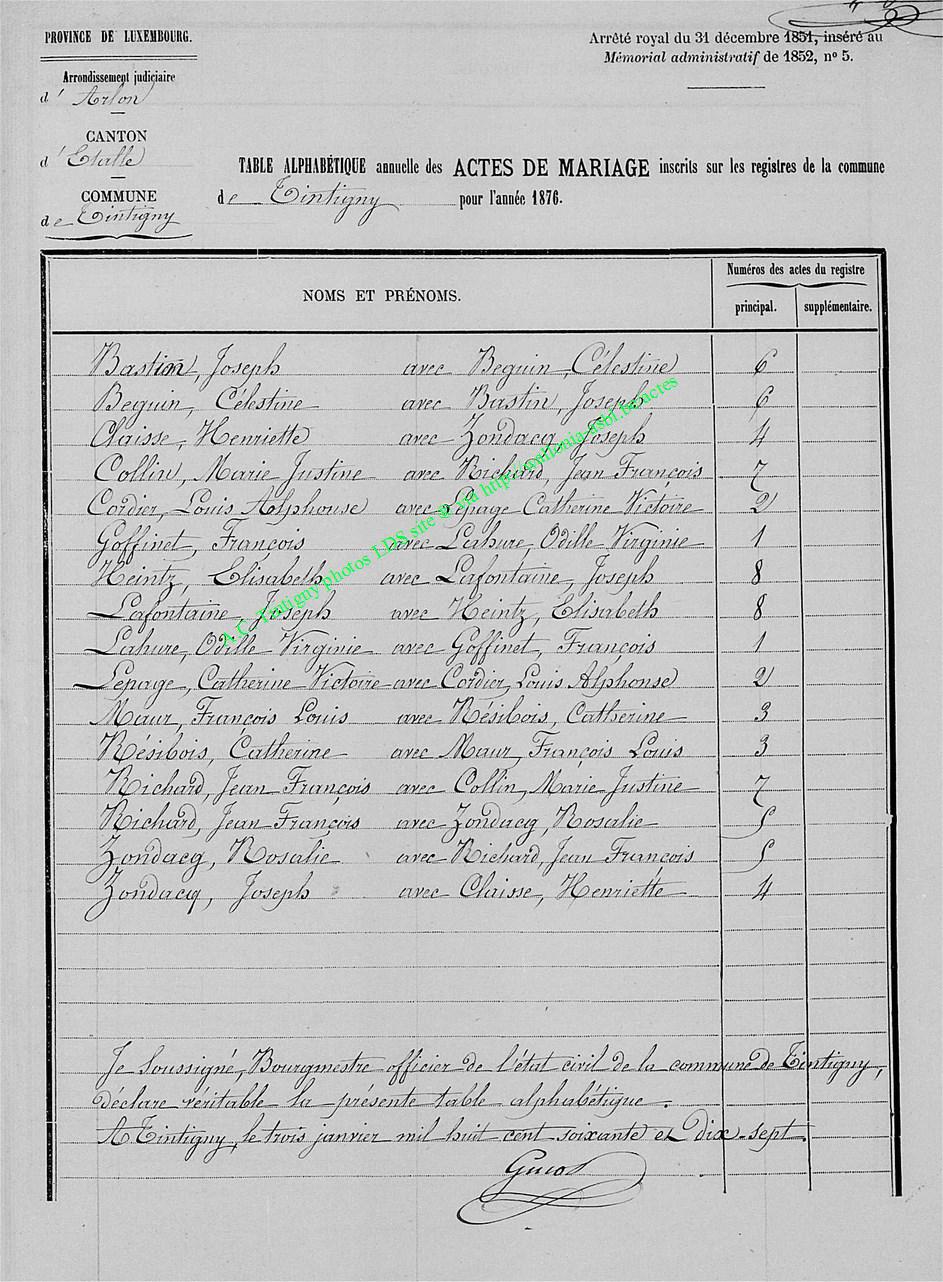 PROVINCE DE LUXEMBOURG.
Arrêté royal du 31 décembre 1851, inséré au
Mémorial administratif de 1852, nº 5.
Arrondissement judiciaire
d' Arlon
CANTON
d' Etalle
COMMUNE
de Tintigny
TABLE ALPHABÉTIQUE annuelle des ACTES DE MARIAGE inscrits sur les registres de la commune
de Tintigny pour l'année 1876.
NOMS ET PRÉNOMS.
Numéros des actes du registre
principal. supplémentaire.
Bastin, Joseph avec Beguin, Célestine 6
Beguin, Célestine avec Bastin, Joseph 6
Claisse, Henriette avec Zondacq, Joseph 4
Collin, Marie Justine avec Richard, Jean François 7
Cordier, Louis Alphonse avec Lepage Catherine Victoire 2
Goffinet, François avec Lahure, Odille Virginie 1
Heintz, Elisabeth avec Lafontaine, Joseph 8
Lafontaine, Joseph avec Heintz, Elisabeth 8
Lahure, Odille Virginie avec Goffinet, François 1
Lepage, Catherine Victoire avec Cordier, Louis Alphonse 2
Maur, François Louis avec Résibois, Catherine 3
Résibois, Catherine avec Maur, François Louis 3
Richard, Jean François avec Collin, Marie Justine 7
Richard, Jean François avec Zondacq, Rosalie 5
Zondacq, Rosalie avec Richard, Jean François 5
Zondacq, Joseph avec Claisse, Henriette 4
A.C. Tintigny photos LDS site @ via http://sylhonia-asbl.be/actes
Je soussigné, Bourgmestre officier de l'état civil de la commune de Tintigny,
déclare véritable la présente table alphabétique.
A Tintigny, le trois janvier mil huit cent soixante et dix-sept.